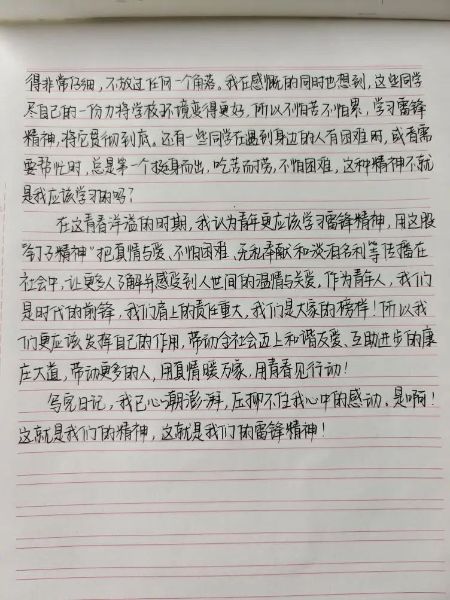 得非常仔细，不放过任何一个角落。我在感慨的同时也想到，这些同学
尽自己的一份力将学校环境变得更好，所以不怕苦不怕累，学习雷锋
精神，将它贯彻到底。还有一些同学在遇到身边的人有困难时，或者需
要帮忙时，总是第一个挺身而出，吃苦而劳，不怕困难，这种精神不就
是我应该学习的吗？
在这青春洋溢的时期，我认为青年更应该学习雷锋精神，用这股
“钉子精神”把真情与爱、不怕困难、无私奉献和淡泊名利等传播在
社会中，让更多人了解并感受到人世间的温情与关爱。作为青年人，我们
是时代的前锋，我们肩上的责任重大，我们是大家的榜样！所以我
们更应该发挥自己的作用，带动全社会迈上和谐友爱、互助进步的康
庄大道，带动更多的人，用真情暖万家，用青春见行动！
写完日记，我已心潮澎湃，压抑不住我心中的感动。是啊！
这就是我们的精神，这就是我们的雷锋精神！